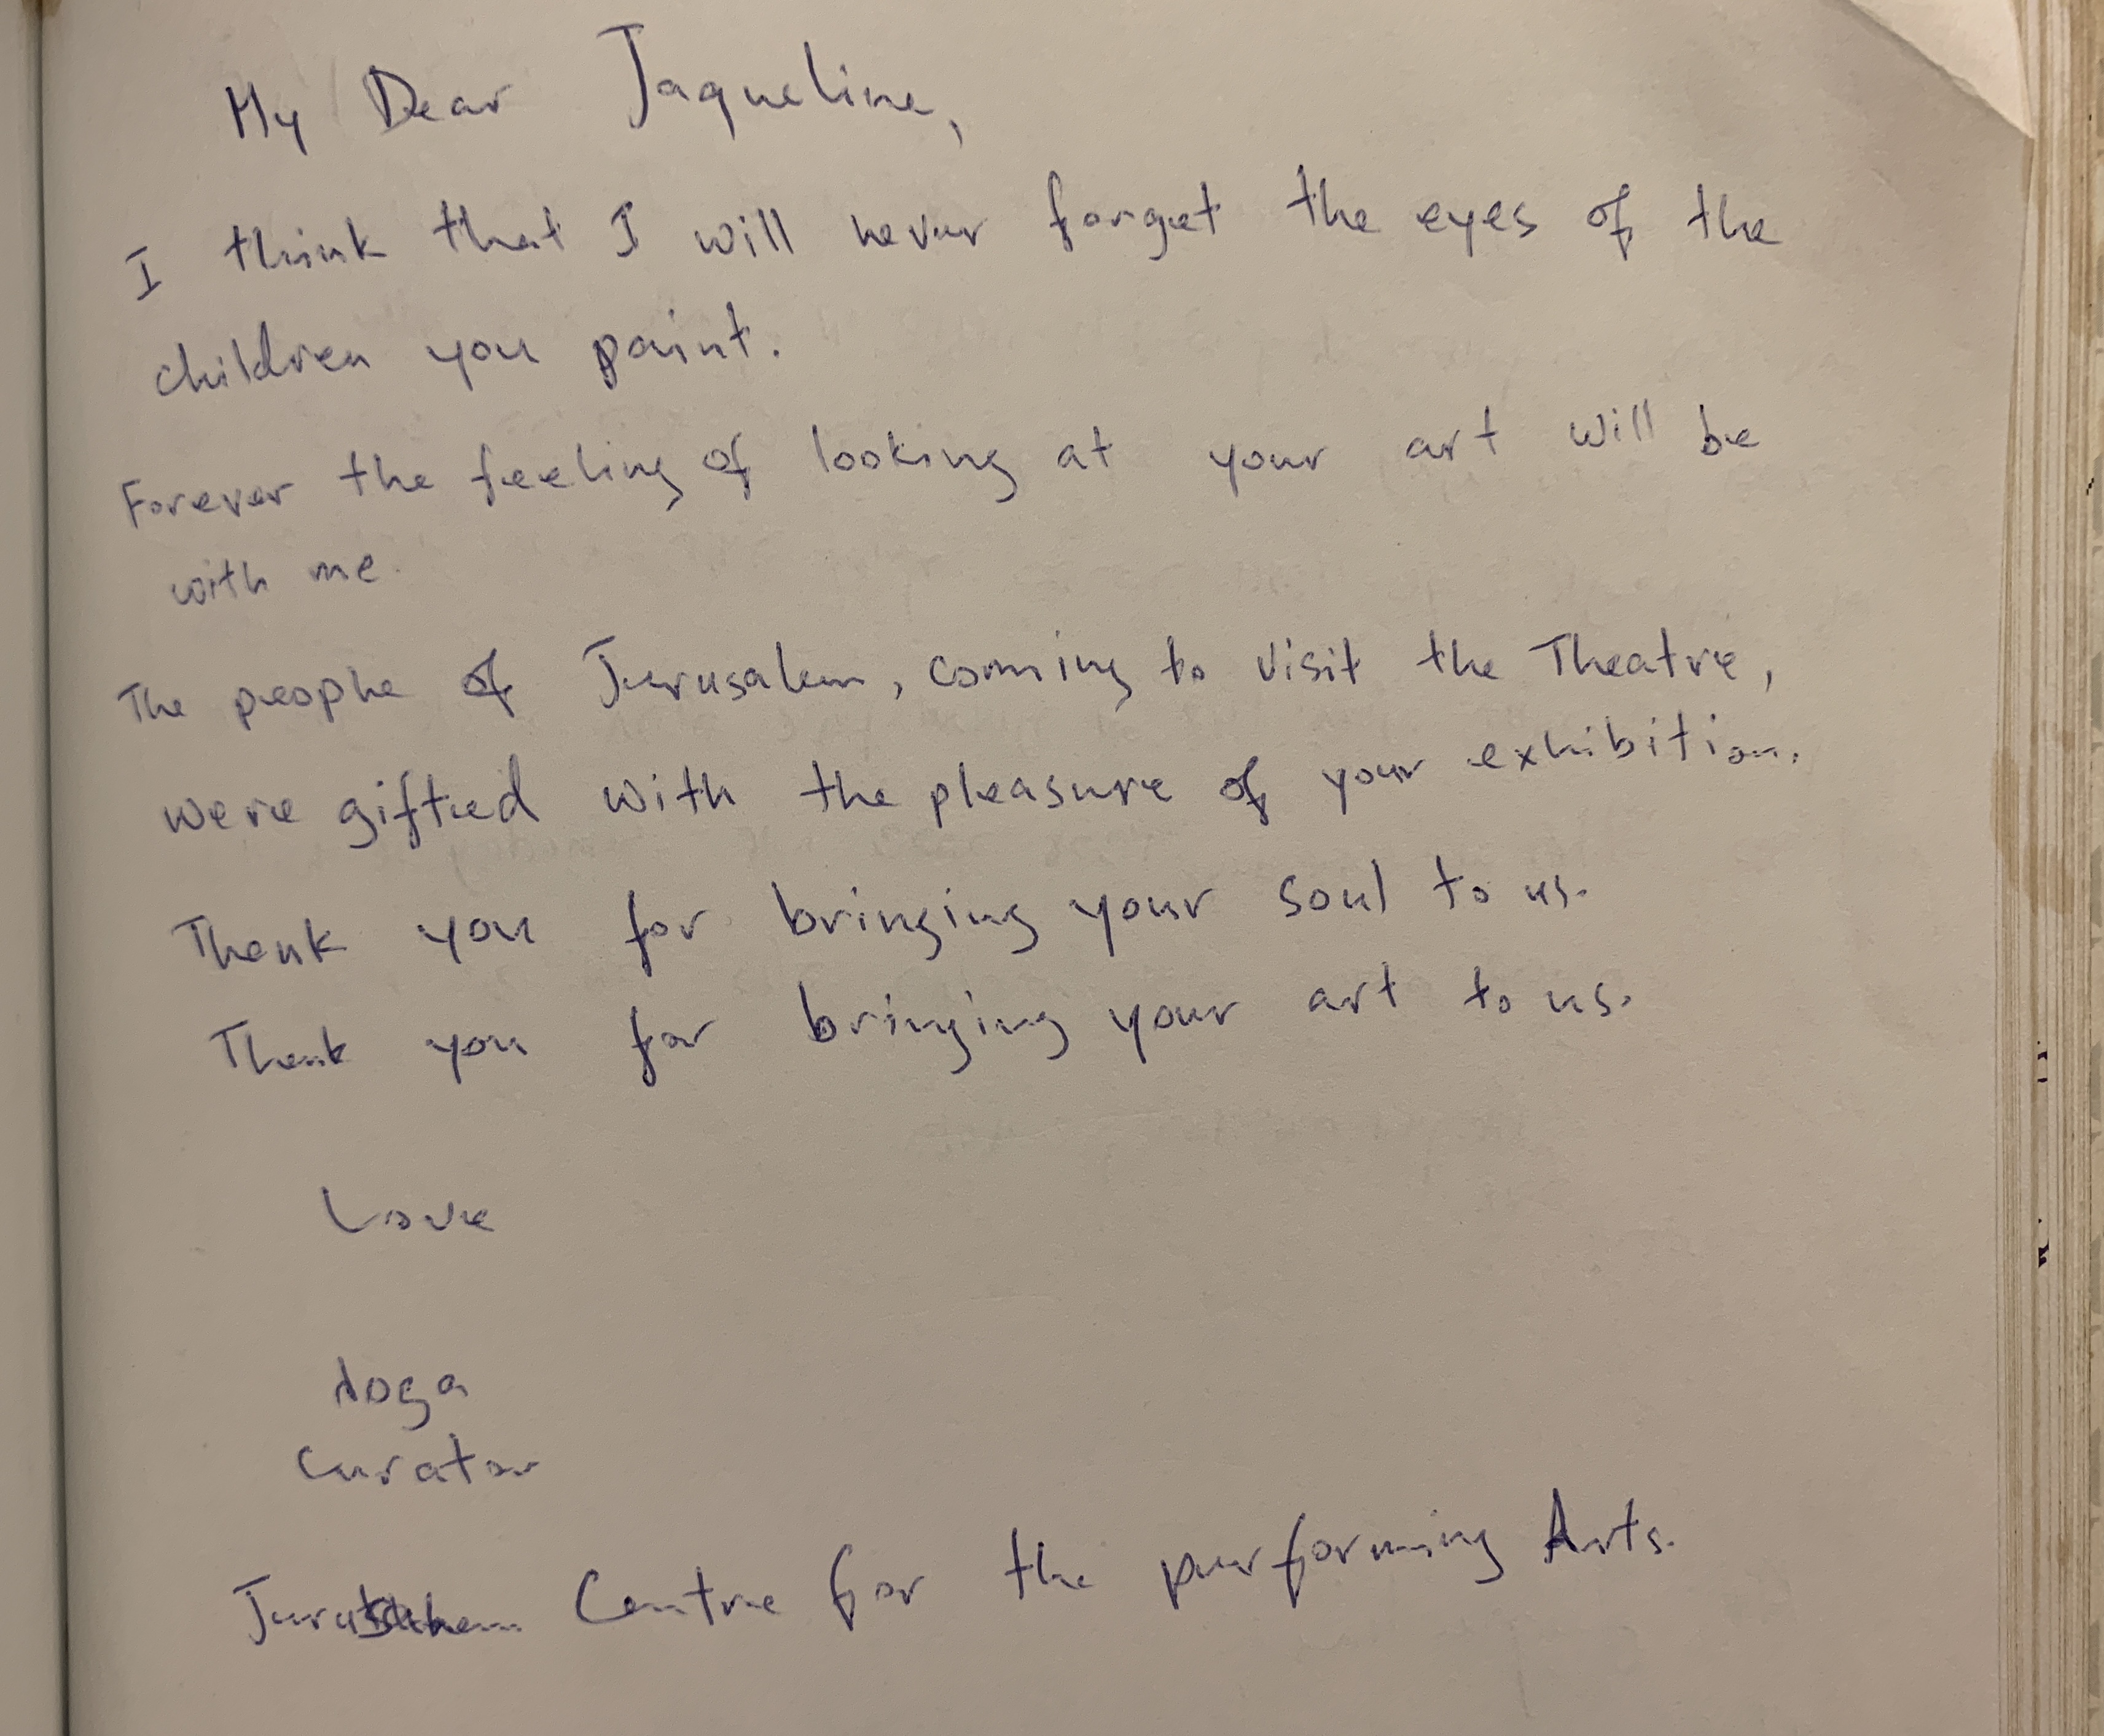 My Dear Jaqueline,
I think that I will never forget the eyes of the
children you paint.
Forever the feeling of looking at your art will be
with me.
The people of Jerusalem, comming to visit the Theatre,
were gifted with the pleasure of your exhibition.
Thank you for bringing your soul to us.
Thank you for bringing your art to us.
Love
Noga
Curator
Jerusalem Centre for the performing Arts.